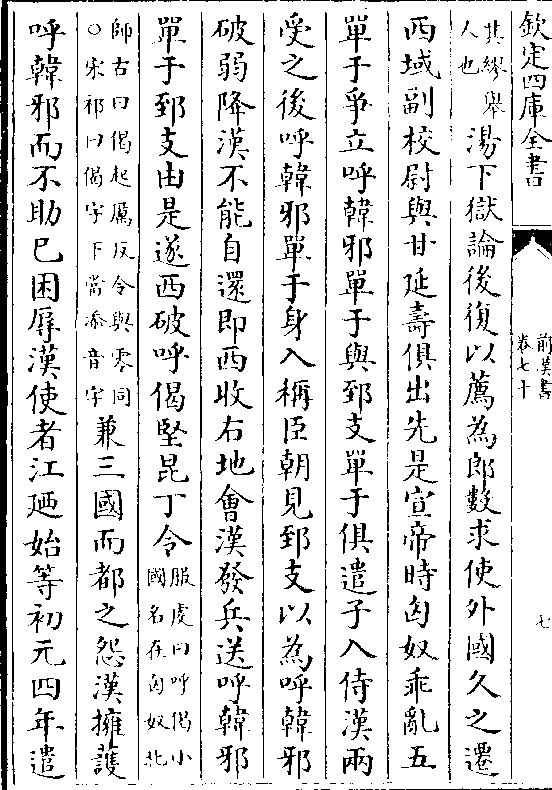 欽定四庫全書
前漢書
卷七十
七
其繆舉
人也
湯下獄論後復以薦為郎數求使外國久之遷
西域副校尉與甘延壽俱出先是宣帝時匈奴乖亂五
單于爭立呼韓邪單于與郅支單于俱遣子入侍漢兩
受之後呼韓邪單于身入稱臣朝見郅支以為呼韓邪
破弱降漢不能自還即西收右地會漢發兵送呼韓邪
單于郅支由是遂西破呼偈堅昆丁令
服䖍曰呼偈小
國名在匈奴北
師古曰偈起厲反令與零同
○宋祁曰偈字下當添音字
兼三國而都之怨漢擁護
呼韓邪而不助已困辱漢使者江廼始等初元四年遣